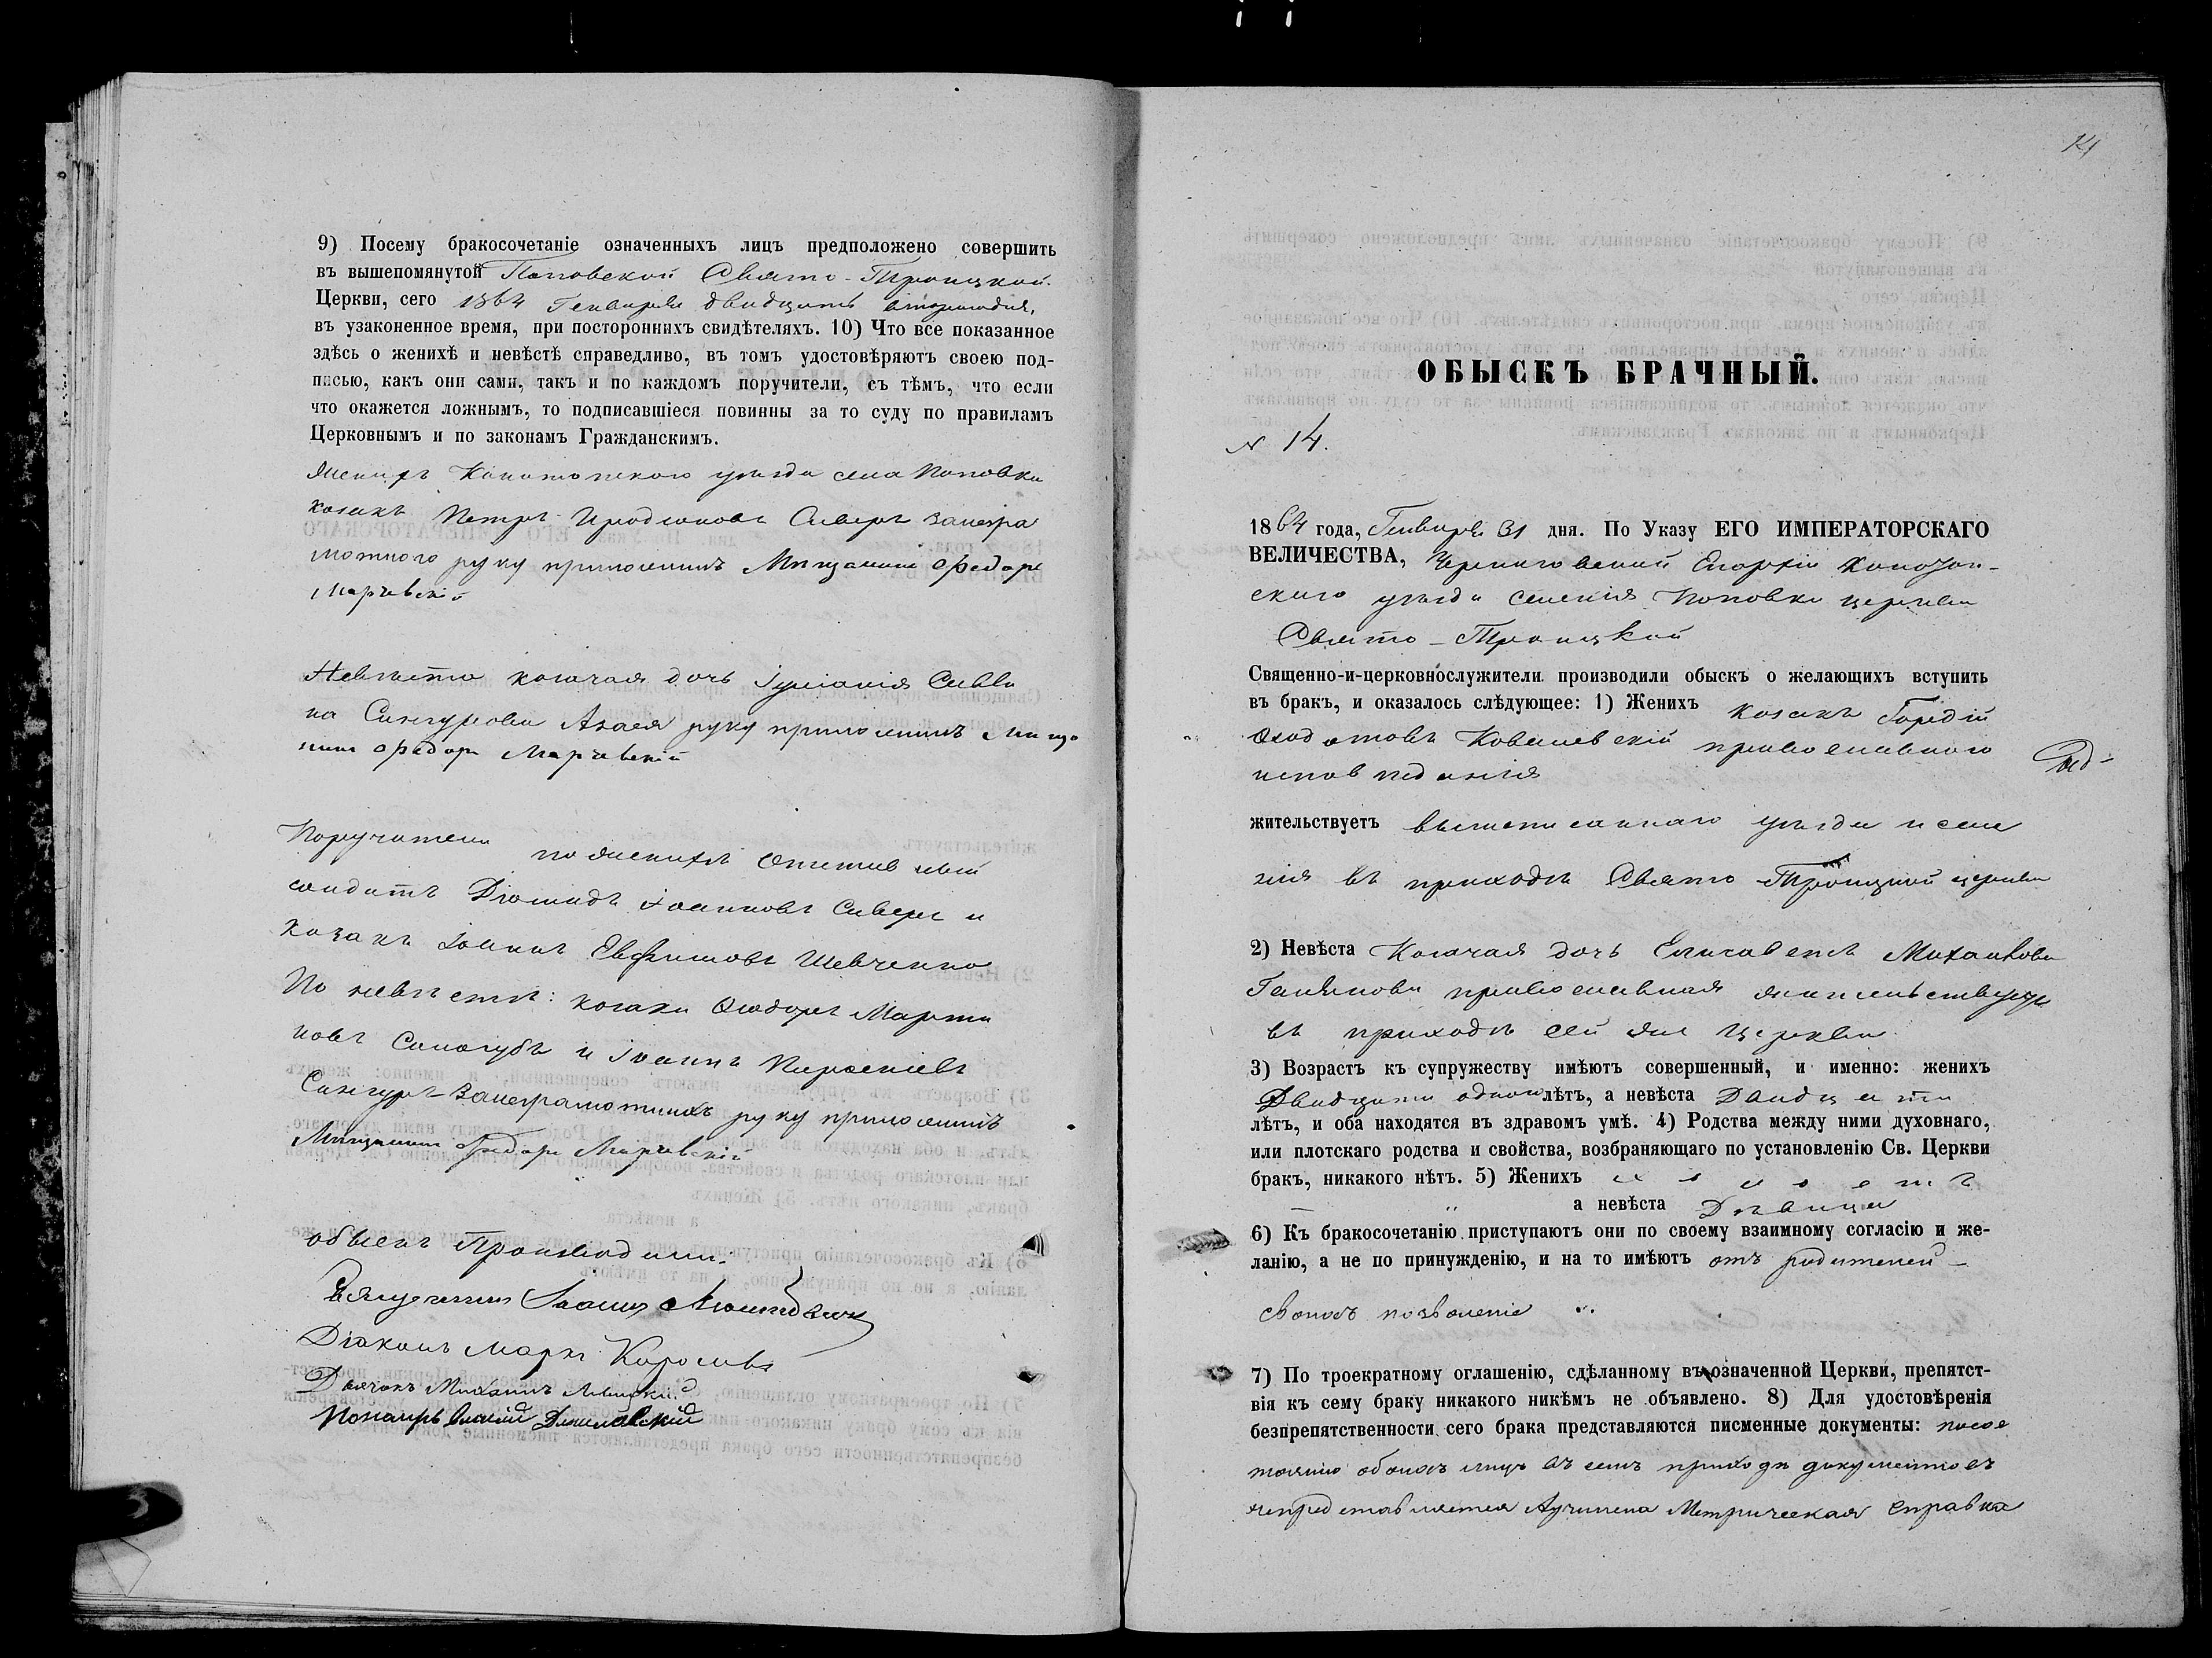 9) Посему бракосочетаніе означенныхъ лицъ предположено совершить
въ вышепомянутой Поповской Свято-Троицкой
Церкви, сего 1864 Генваря двадцать втораго дня,
въ узаконенное время, при постороннихъ свидѣтеляхъ. 10) Что все показанное
здѣсь о женихѣ и невѣстѣ справедливо, въ томъ удостовѣряютъ своею под-
писью, какъ они сами, такъ и по каждомъ поручители, съ тѣмъ, что если
что окажется ложнымъ, то подписавшіеся повинны за то суду по правиламъ
Церковнымъ и по законамъ Гражданскимъ.
Женихъ Конотопского уѣзда села Поповки
козакъ Петръ Сиверъ занегра
мотного руку приложилъ Мищанинъ Федоръ
Невѣста козачая дочь Іуліанія Савви
на руку приложилъ Мища
нинъ Федоръ
Поручители по женихѣ отставный
солдатъ Діомидъ Іоанновъ Сиверъ и
козакъ Іоаннъ Евфимовъ Шевченко
По невѣстѣ: козаки Ѳеодоръ Марти
новъ Сологубъ и Іоаннъ
занеграмотныхъ руку приложилъ
Мищанинъ Федоръ
обыскъ Производили:
Священникъ Іоаннъ
Діаконъ Марко Королевъ
Дьячокъ Михаилъ
Пономарь
14
ОБЫСКЪ БРАЧНЫЙ.
N 14.
1864 года, Генваря 31 дня. По Указу ЕГО ИМПЕРАТОРСКАГО
ВЕЛИЧЕСТВА, Черниговской Епархіи Конотоп-
скаго уѣзда селенія Поповки церкви
Свято-Троицкой
Священно-и-церковнослужители производили обыскъ о желающихъ вступить
въ бракъ, и оказалось слѣдующее: 1) Женихъ козакъ Гордій
Ковалевскій православного
исповѣданія
жительствуетъ вышеписаннаго уѣзда и селе
нія въ приходѣ Свято-Троицкой церкви
2) Невѣста Козачая дочь Елисавета Михайлова
православная жительствуетъ
въ приходѣ сей же Церкви
3) Возрастъ къ супружеству имѣютъ совершенный, и именно: женихъ
Двадцати одного лѣтъ, а невѣста Двадцати
лѣтъ, и оба находятся въ здравомъ умѣ. 4) Родства между ними духовнаго,
или плотскаго родства и свойства, возбраняющаго по установленію Св. Церкви
бракъ, никакого нѣтъ. 5) Женихъ холостъ
а невѣста Дѣвица
6) Къ бракосочетанію приступаютъ они по своему взаимному согласію и же-
ланію, а не по принужденію, и на то имѣютъ отъ родителей
своихъ позволеніе
7) По троекратному оглашенію, сдѣланному въ означенной Церкви, препятст-
вія къ сему браку никакого никѣмъ не объявлено. 8) Для удостовѣренія
безпрепятственности сего брака представляются писменные документы: посос
тоянію обоихъ лицъ въ семъ приходѣ документовъ
непредставляется Аучинена Метрическая справка